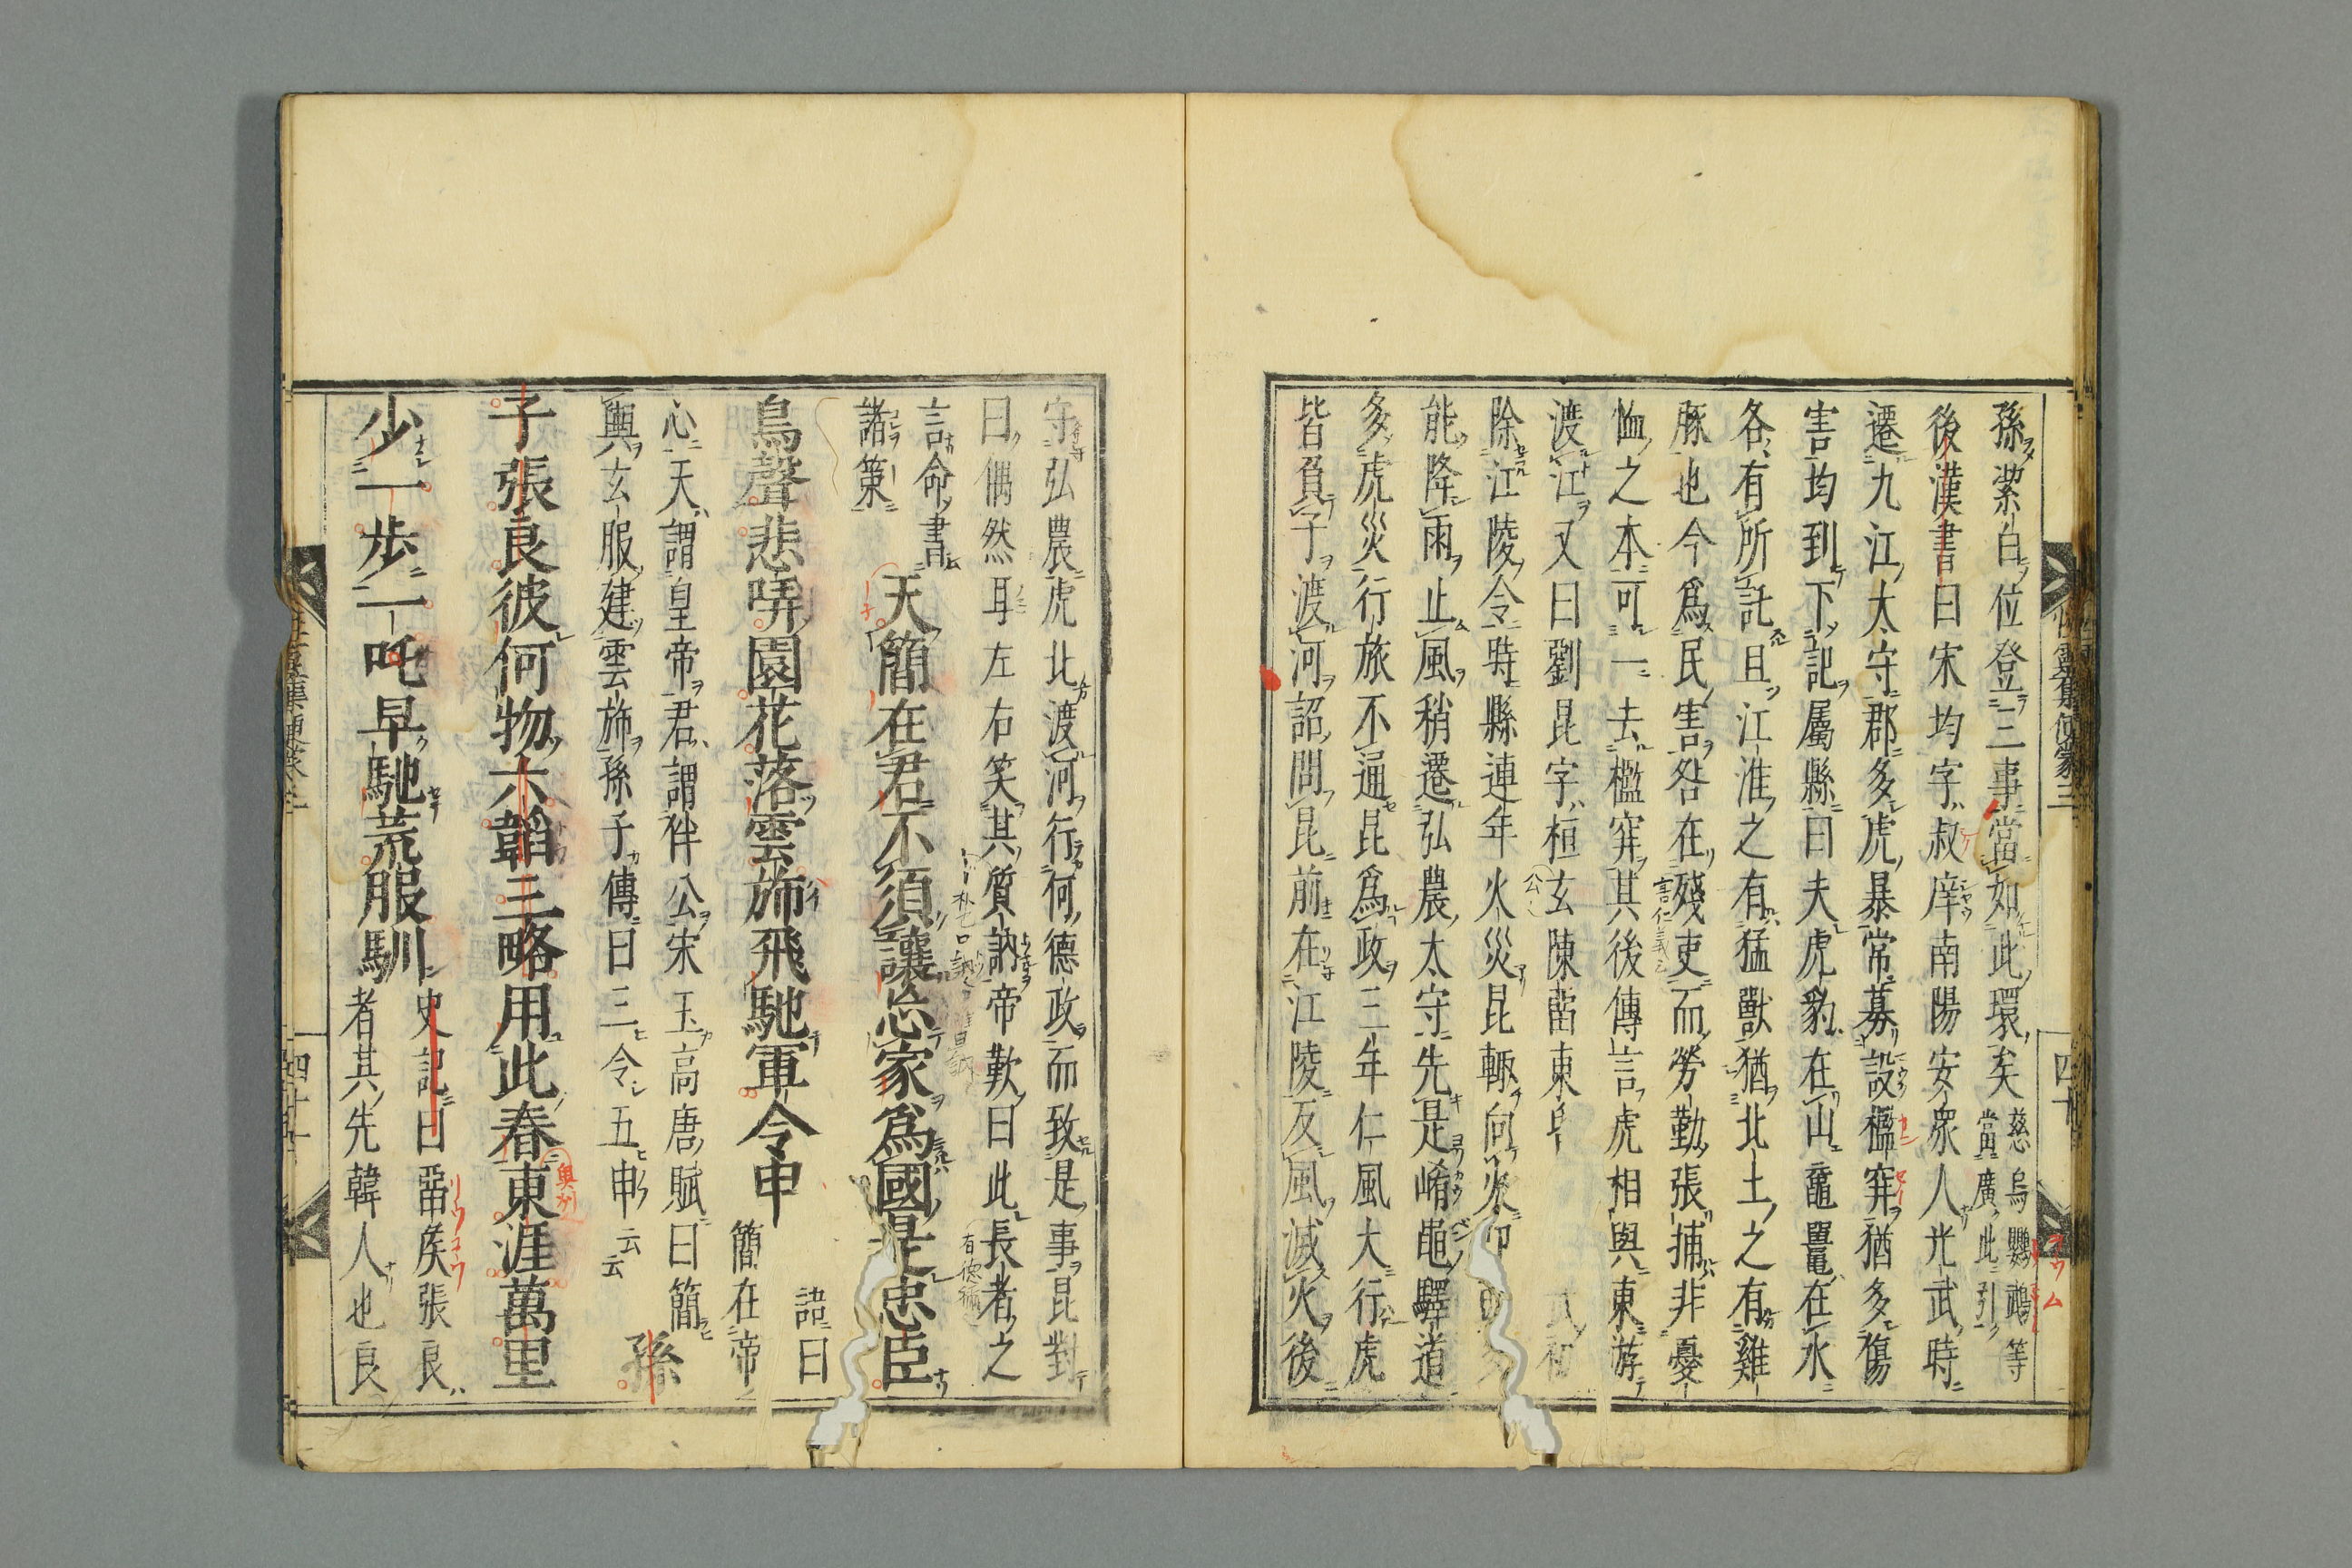 孫潔白位登三事當如此環矣慈烏鸚鵡等
當廣此引
後漢書曰宋均字叔庠南陽安衆人光武時
遷九江太守郡多虎暴常募設檻穽猶多傷
害均到下記屬縣曰夫虎豹在山黿鼉在水
各有所託且江淮之有猛獸猶北土之有雞
豚也今爲民害咎在殘吏而勞勤張捕非憂
恤之本可一去檻穽其後傳言虎相與東游
渡江又曰劉昆字桓公陳留東
除江陵令時縣連年火災昆輙向火叩
能降雨止風稍遷弘農太守先是崤黽驛道
多虎災行旅不通昆爲政三年仁風大行虎
皆負子渡河詔問昆前在江陵反風滅火後
守弘農虎北渡河行何德政而致是事昆對
曰偶然耳左右笑其質訥帝歎曰此長者之
言命書
諸策
天簡在君不須讓忘家爲國是忠臣
鳥聲悲哢園花落雲旆飛馳軍令申
語曰
簡在帝
心天謂皇帝君謂伴公宋玉高唐賦曰簡
輿玄服建雲旆孫子傳曰三令五申云云
孫
子張良彼何物六韜三略用此春東涯萬里
少一歩一吒早馳荒服馴
史記曰畱侯張良
者其先韓人也良